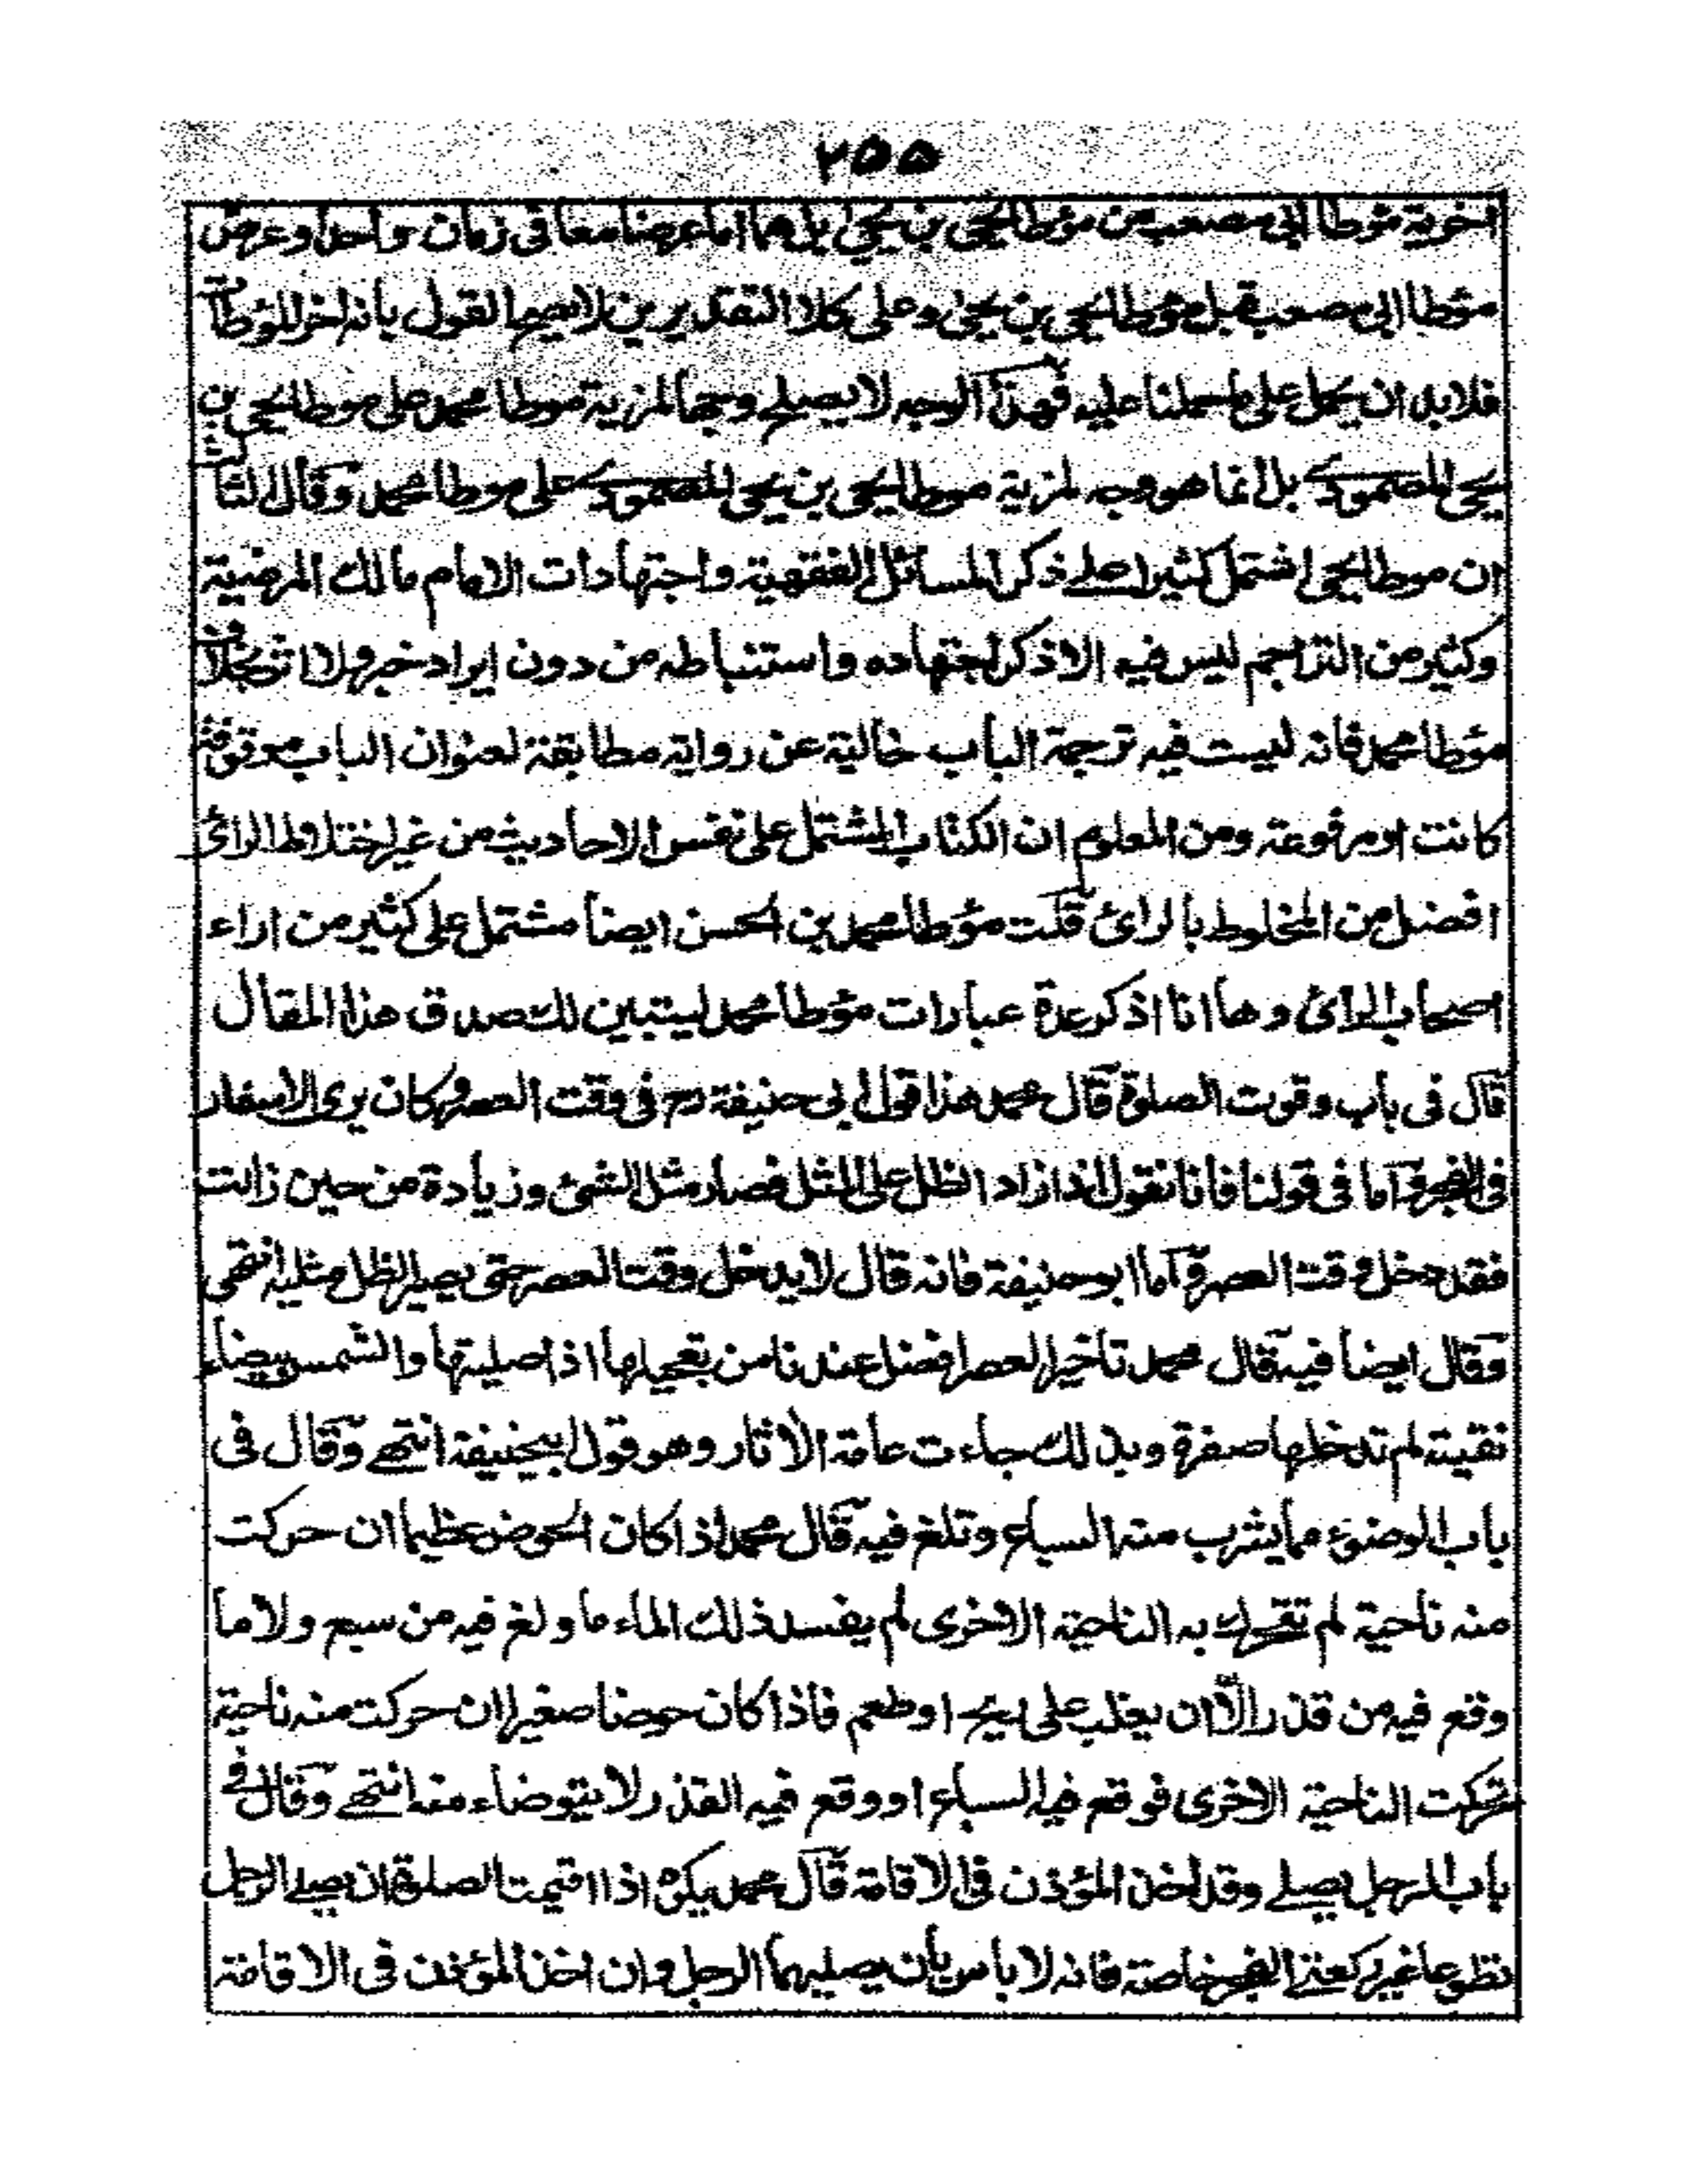 ٢٥٥
اخرية مؤطا ابى مصعب من مؤطا يحيى بن يحيى بل هما اما عرضا معا فى زمان واحد او عرض
مؤطا ابى مصعب قبل مؤطا يحيى بن يحيى وعلى كلا التقديرين لا يصح القول بانه اخر المؤطآت
فلا بد ان يحمل على ما حملنا عليه فهذا الوجه لا يصلح وجها لمزية موطا محمد على موطا يحيى بن
يحيى المصمودے بل انما هو وجه لمزية موطا يحيى بن يحيى المصمودے على موطا محمد وقال الثالث
ان موطا يحيى اشتمل كثيرا على ذكر المسائل الفقهية واجتهادات الامام مالك المرضية
وكثير من التراجم ليس فيه الا ذكر اجتهاده واستنباطه من دون ايراد خبر ولا اثر بخلاف
مؤطا محمد فانه ليست فيه ترجمة الباب خالية عن رواية مطابقة لعنوان الباب موقوفة
كانت او مرفوعة ومن المعلوم ان الكتاب المشتمل على نفس الاحاديث من غير اختلاط الرائ
افضل من المخلوط بالرائ قلت مؤطا محمد بن الحسن ايضا مشتمل على كثير من اراء
اصحاب الرائ وها انا اذكر عدة عبارات مؤطا محمد ليتبين لك صدق هذا المقال
قال فى باب وقوت الصلوة قال محمد هذا قول ابى حنيفة رح فى وقت العصر وكان يرى الاسفار
فى الفجر واما فى قولنا فانا نقول اذا زاد الظل على المثل فصار مثل الشئ وزيادة من حين زالت
فقد دخل وقت العصر واما ابو حنيفة فانه قال لا يدخل وقت العصر حتى يصير الظل مثليه انتهى
وقال ايضا فيه قال محمد تاخير العصر افضل عندنا من تعجيلها اذا صليتها والشمس بيضاء
نقية لم تدخلها صفرة وبذلك جاءت عامة الاثار وهو قول ابيحنيفة انتهے وقال فى
باب الوضوء مما يشرب منه السباع وتلغ فيه قال محمد اذا كان الحوض عظيما ان حركت
منه ناحية لم تتحرك به الناحية الاخرى لم يفسد ذلك الماء ما ولغ فيه من سبع ولا ما
وقع فيه من قذر الا ان يغلب على ريح او طعم فاذا كان حوضا صغيرا ان حركت منه ناحية
تحركت الناحية الاخرى فوقع فيه السباع او وقع فيه القذر لا يتوضاء منه انتهے وقال فے
باب الرجل يصلے وقد اخذ المؤذن فى الاقامة قال محمد يكره اذا اقيمت الصلوة ان يصلے الرجل
تطوعا غير ركعتے الفجر خاصة فانه لا باس بان يصليهما الرجل وان اخذ المؤذن فى الاقامة